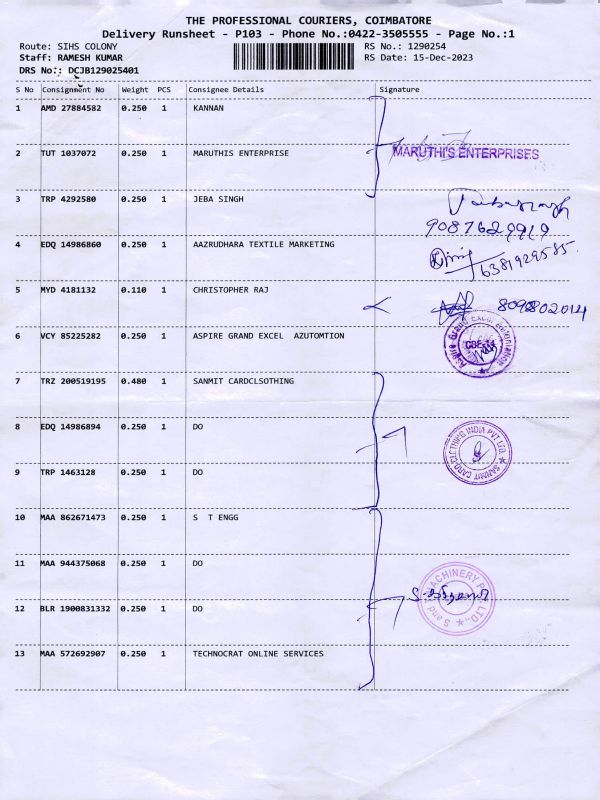 THE PROFESSIONAL COURIERS, COIMBATORE
Delivery Runsheet - P103 - Phone No.:0422-3505555 - Page No.:1
Route: SIHS COLONY RS No.: 1290254
Staff: RAMESH KUMAR RS Date: 15-Dec-2023
DRS No:: DCJB129025401
S No Consignment No Weight PCS Consignee Details Signature
1 AMD 27884582 0.250 1 KANNAN
2 TUT 1037072 0.250 1 MARUTHIS ENTERPRISE MARUTHI'S ENTERPRISES
3 TRP 4292580 0.250 1 JEBA SINGH
9087629919
4 EDQ 14986860 0.250 1 AAZRUDHARA TEXTILE MARKETING
6381929585
5 MYD 4181132 0.110 1 CHRISTOPHER RAJ
6 VCY 85225282 0.250 1 ASPIRE GRAND EXCEL AZUTOMTION
7 TRZ 200519195 0.480 1 SANMIT CARDCLSOTHING
8 EDQ 14986894 0.250 1 DO
SANMIT CARD CLOTHING INDIA PVT LTD.
9 TRP 1463128 0.250 1 DO
10 MAA 862671473 0.250 1 S T ENGG
11 MAA 944375068 0.250 1 DO
MACHINERY P
LTD.,
12 BLR 1900831332 0.250 1 DO
13 MAA 572692907 0.250 1 TECHNOCRAT ONLINE SERVICES